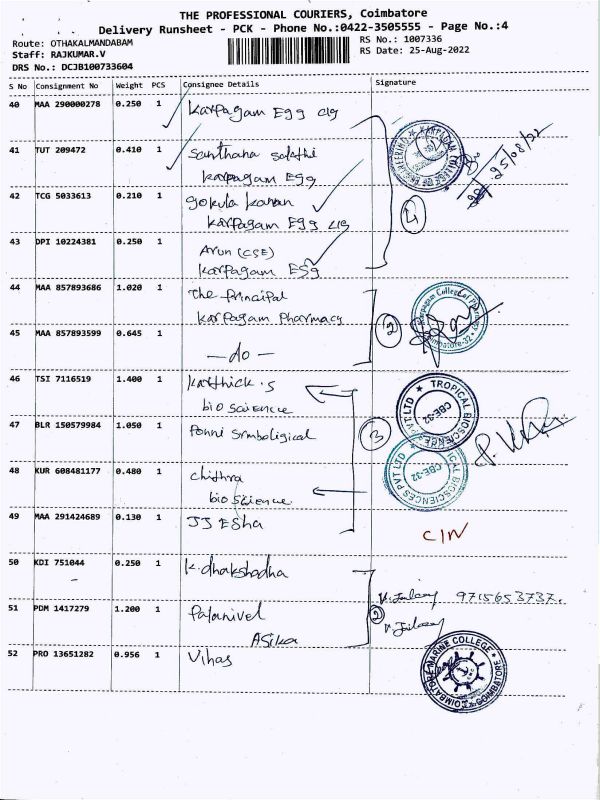 THE PROFESSIONAL COURIERS, Coimbatore
Delivery Runsheet - PCK - Phone No.:0422-3505555 - Page No.:4
Route: OTHAKALMANDABAM
RS No.: 1007336
Staff: RAJKUMAR.V
RS Date: 25-Aug-2022
DRS No.: DCJB100733604
S No Consignment No Weight PCS Consignee Details Signature
40 MAA 290000278 0.250 1 Karpagam Egg clg
25/08/22
41 TUT 209472 0.410 1 Santhana sakthi
Karpagam Egg
42 TCG 5033613 0.210 1 gokula kanan
Karpagam Egg clg
4
43 DPI 10224381 0.250 1 Arun (CSE)
Karpagam Egg
44 MAA 857893686 1.020 1 The principal
Karpagam Pharmacy
2
45 MAA 857893599 0.645 1 — do —
46 TSI 7116519 1.400 1 Karthick.s
bio science
TROPICAL BIOSCIENCES PVT LTD
CBE-32
47 BLR 150579984 1.050 1 Ponni
3
48 KUR 608481177 0.480 1 chithra
bio science
TROPICAL BIOSCIENCES PVT LTD
CBE-32
49 MAA 291424689 0.130 1 JJ Esha
50 KDI 751044 0.250 1 K. dhakshadha
9715653737.
51 PDM 1417279 1.200 1 Palanivel
Asika
2
52 PRO 13651282 0.956 1 Vihas
COIMBATORE MARINE COLLEGE
COIMBATORE